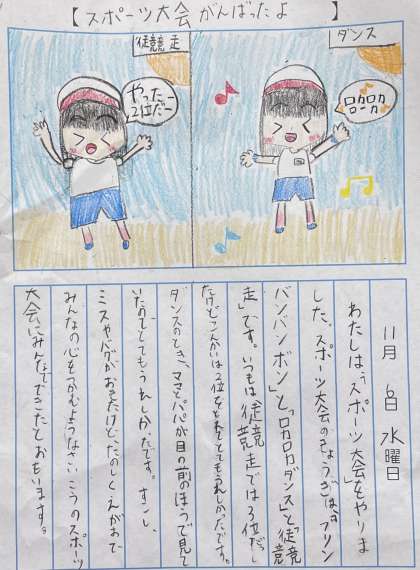 【スポーツ大会がんばったよ】
徒競走
やったー
2位だー
ダンス
ロカロカ
11月 6日 水曜日
わたしは、「スポーツ大会」をやりま
した。スポーツ大会のきょうぎは、「プリン
バンバンボン」と「ロカロカダンス」と「徒競
走」です。いつもは徒競走では3位だっ
たけど、こんかいは2位をとれてとてもうれしかったです。
ダンスのとき、ママとパパが目の前のほうで見て
いたのでとてもうれしかったです。すこし、
ミスやバグがおきたけど、たのしくえがおで
みんなの心をつかむようなさいこうのスポーツ
大会にみんなでできたとおもいます。